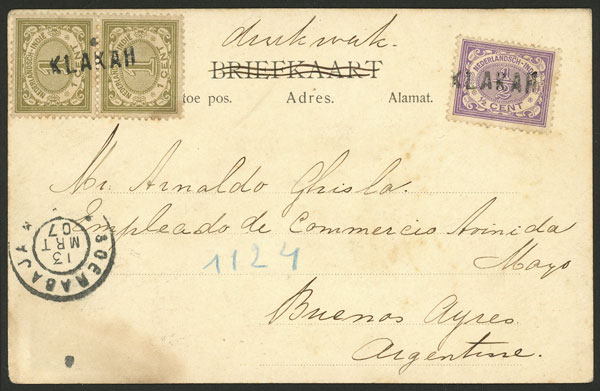 drukwerk.
NEDERLANDSCH-INDIË
1
CENT
KLAKAH
NEDERLANDSCH-INDIË
1 CENT
NEDERLANDSCH-INDIË
½ CENT
KLAKAH
BRIEFKAART
toe pos. Adres. Alamat.
Mr. Arnaldo Ghisla.
Empleado de Commercio Avinida
Mayo
1124
Buenos Ayres.
Argentine.
SOERABAJA
13
MRT
07